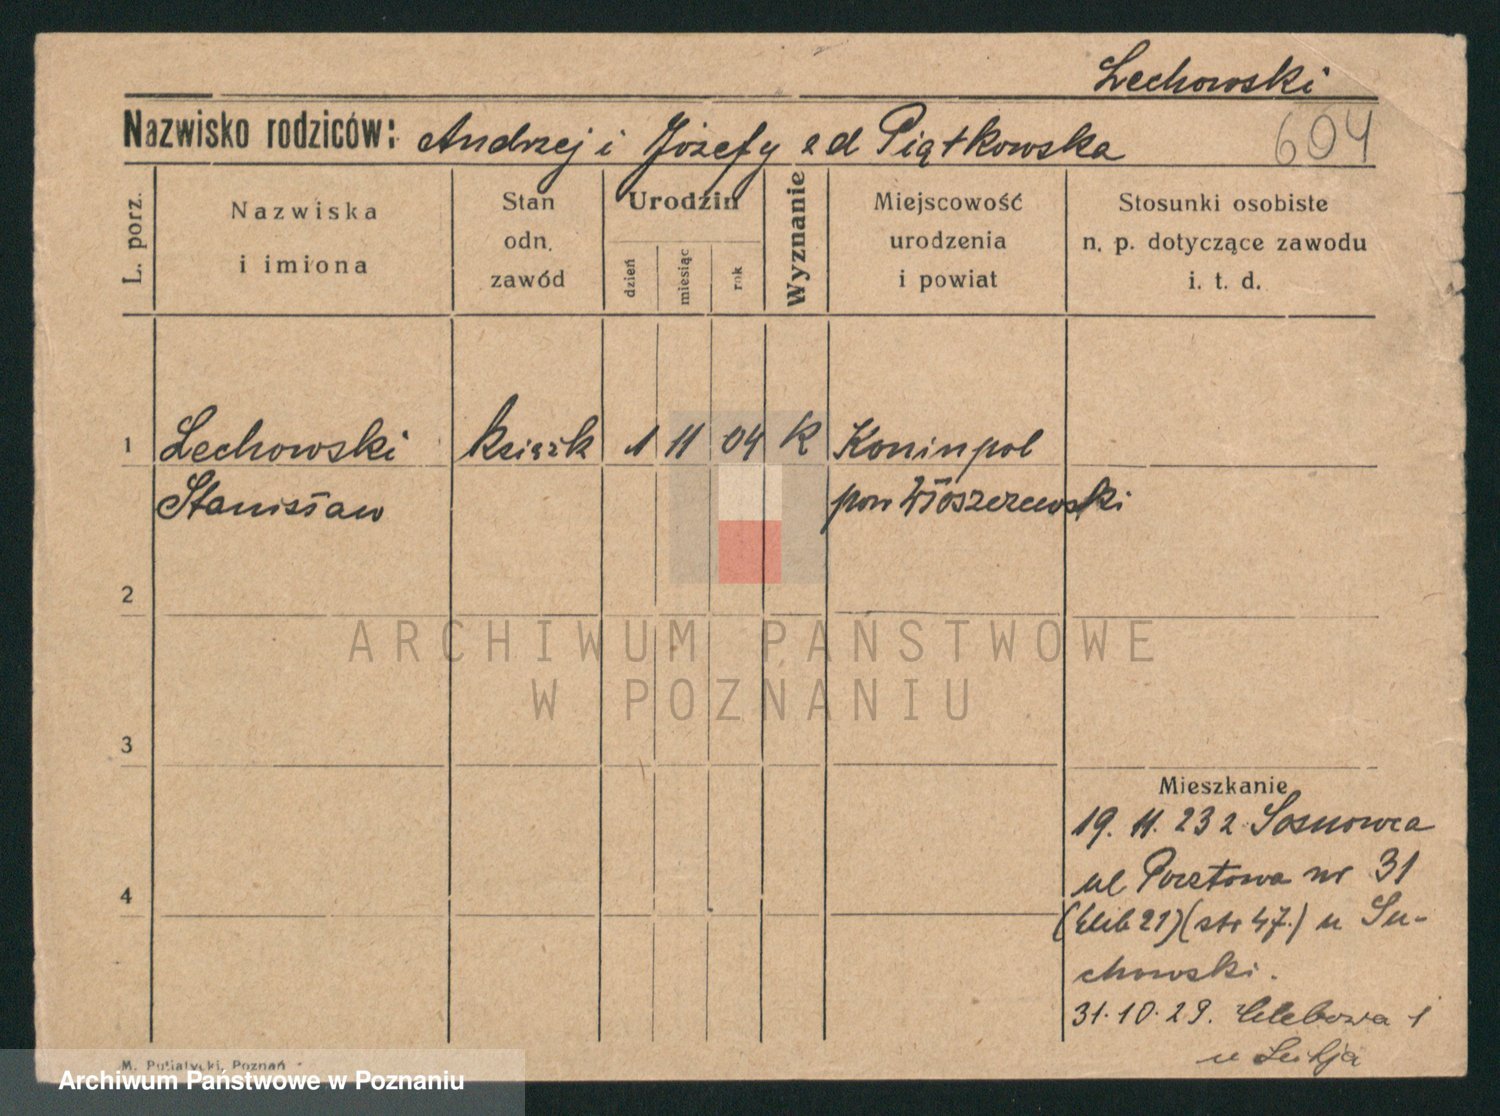 Lechowski
Nazwisko rodziców: Andrzej i Józefy z d Piątkowska
604
L. porz.
Nazwiska
i imiona
Stan
odn.
zawód
Urodzin
dzień
miesiąc
rok
Wyznanie
Miejscowość
urodzenia
i powiat
Stosunki osobiste
n. p. dotyczące zawodu
i. t. d.
1 Lechowski książk 1 11 04 K Koninpol
Stanisław pow Włoszczewski
2
ARCHIWUM PAŃSTWOWE
W POZNANIU
3
Mieszkanie
19. 11. 23 z Sosnowca
ul Pocztowa nr 31
4
21) (str 47.) u Su-
chowski.
31. 10. 29. 1
u
M. Putiatycki, Poznań
Archiwum Państwowe w Poznaniu